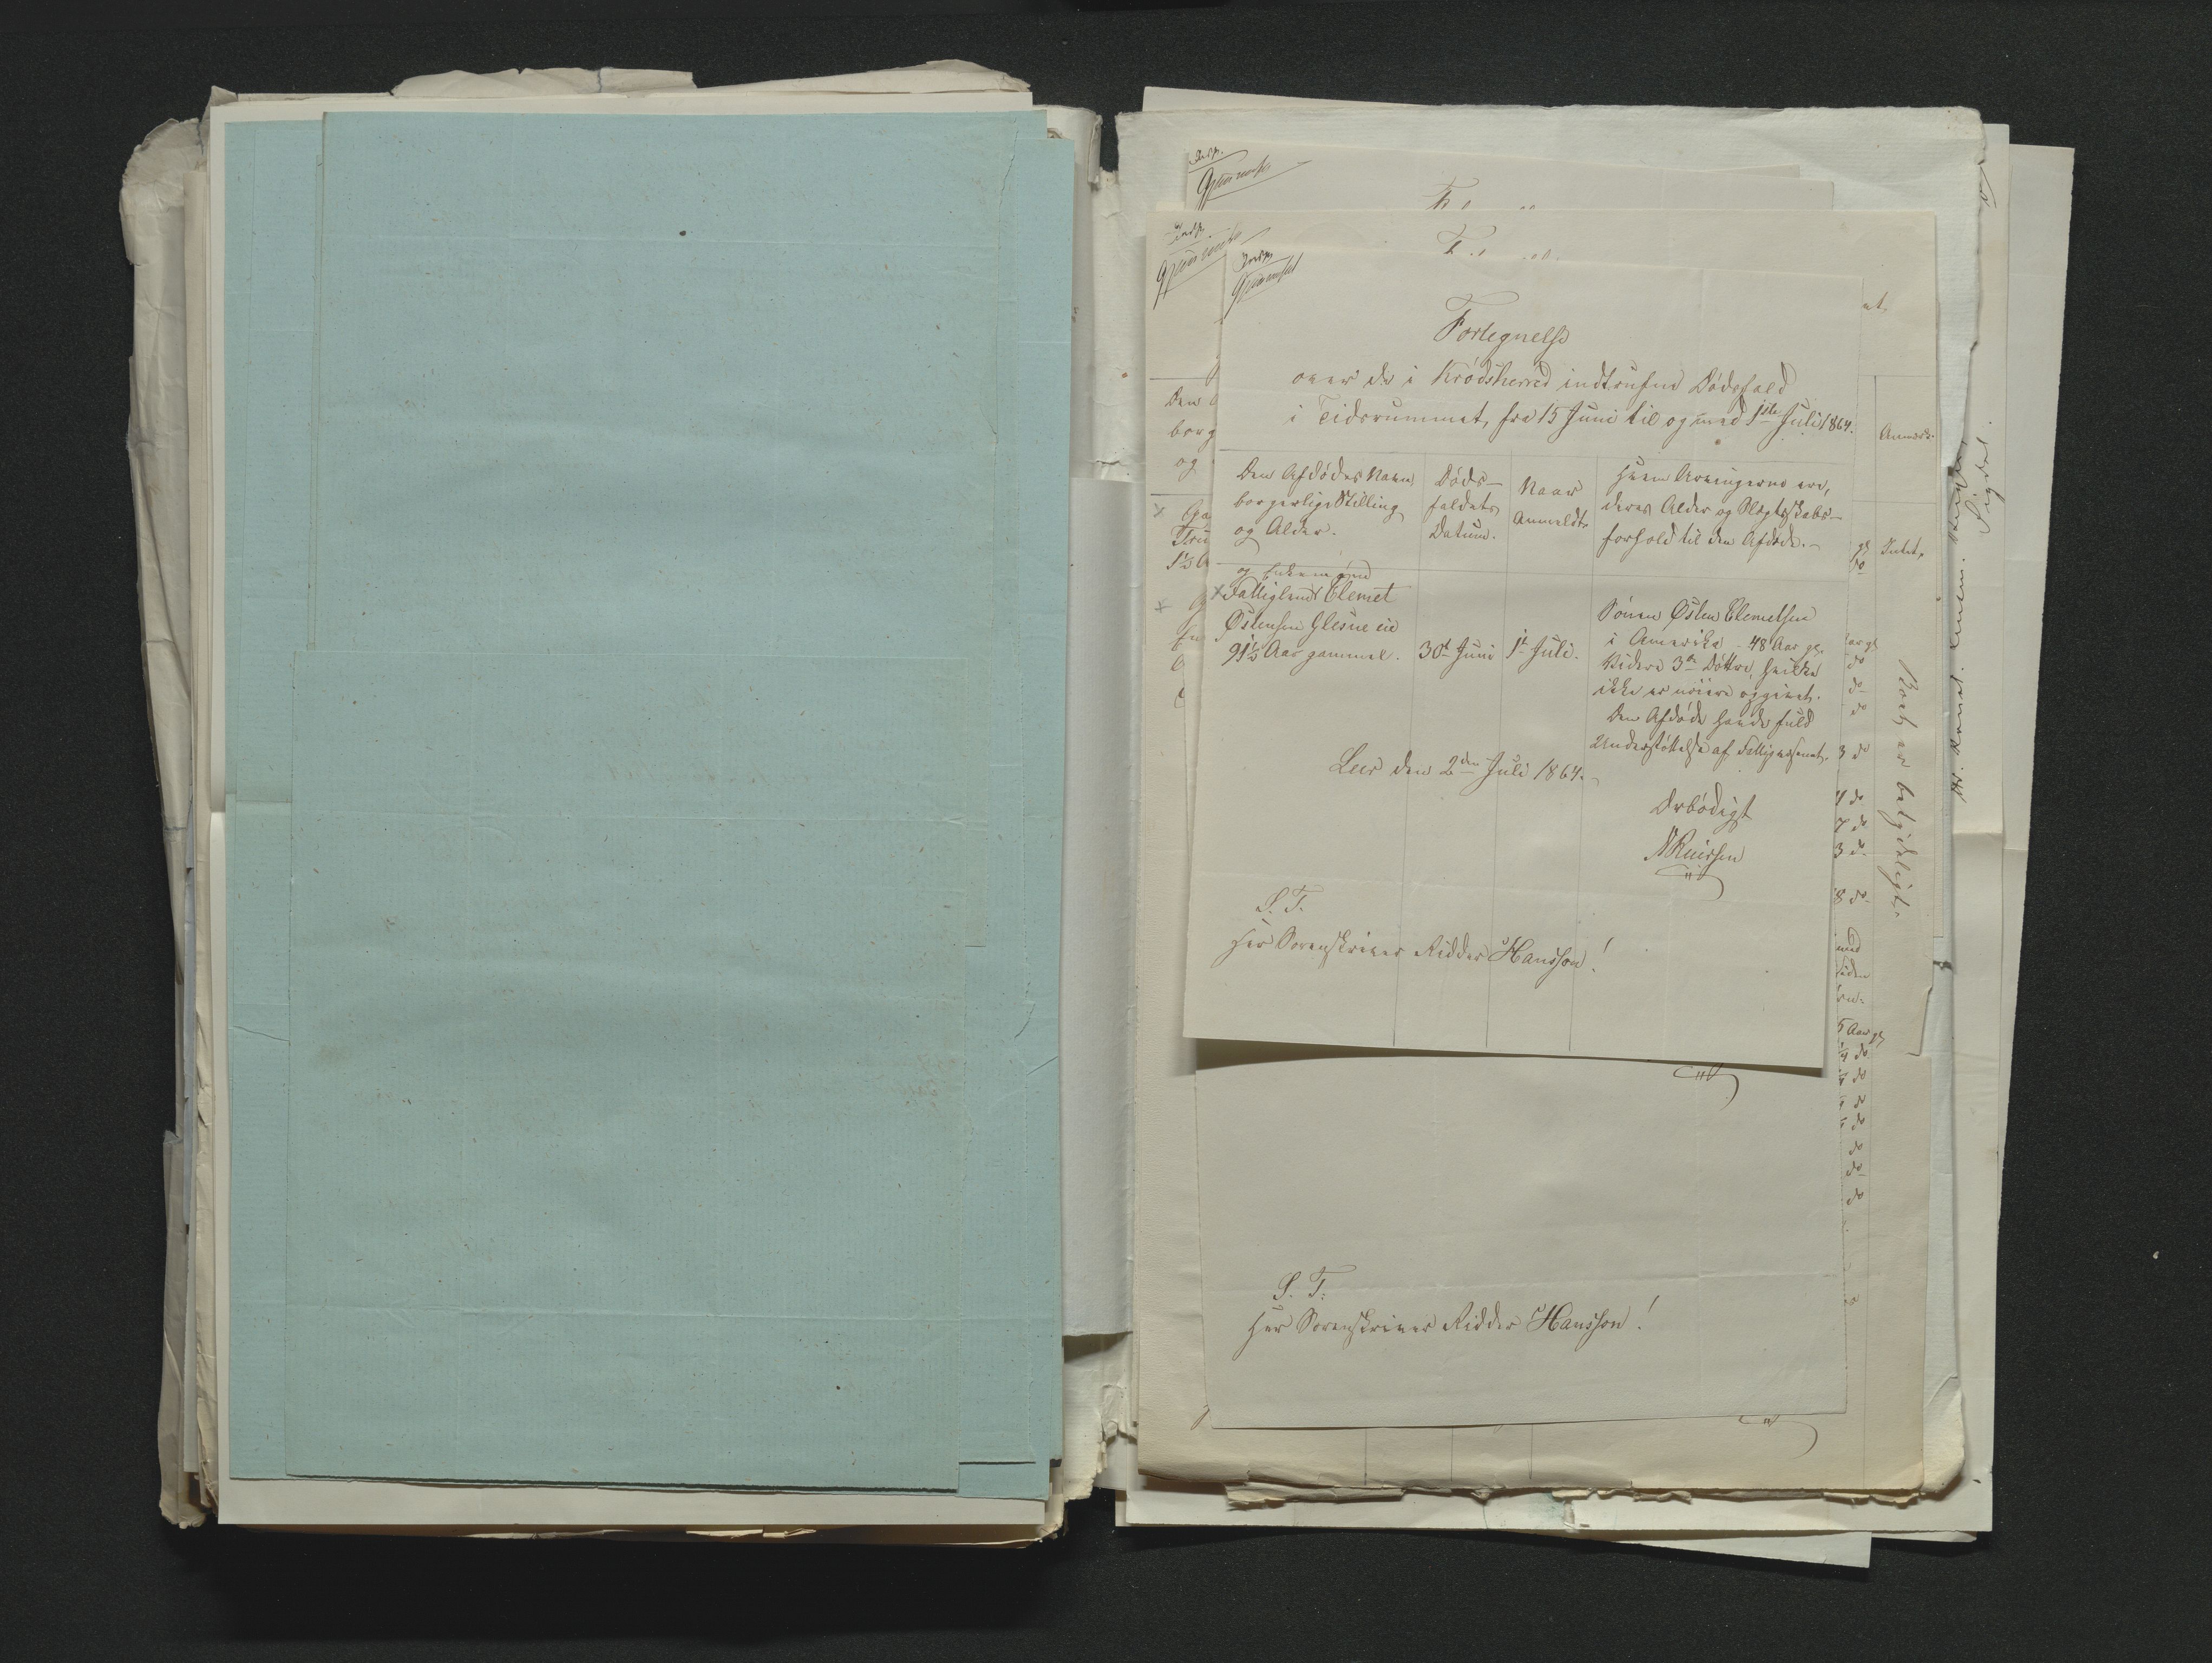 Indf.
Gjennemset
Fortegnelse
over de i Krødsherred indtrufne Dødsfald
i Tidsrummet fra 15 Juni til og med 1ste Juli 1864.
Den Afdødes Navn
borgerlige Stilling
og Alder.
Døds-
faldets
Datum.
Naar
Anmeldt.
Hvem Arvingerne ere,
deres Alder og Slægtskabs-
forhold til den Afdøde.-
og Enkemand
x Fattiglem Clemet
Østensen Glesne eie
91½ Aar gammel.
30t Juni
1t Juli.
Sønen Østen Clemetsen
i Amerika - 48 Aar gl.
Videre 3de Døttre, hvilke
ikke er nøiere opgivet.
Den Afdøde havde fuld
Understøttelse af Fattigvæsenet.
Leer den 2den Juli 1864.
Ærbødigt
S. T.
Her Sorenskriver Ridder Hansson!
S. T.
Her Sorenskriver Ridder Hansson!
Anmærk.
Intet.
Boet er ubetydeligt.
Sigdal.